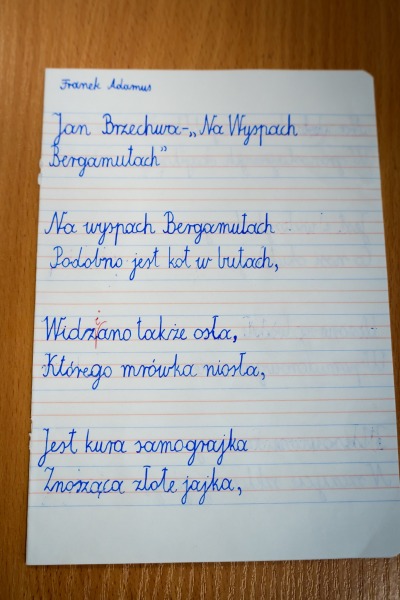 Franek Adamus
Jan Brzechwa-„Na Wyspach
Bergamutach”
Na wyspach Bergamutach
Podobno jest kot w butach,
Widziano także osła,
Którego mrówka niosła,
Jest kura samograjka
Znosząca złote jajka,